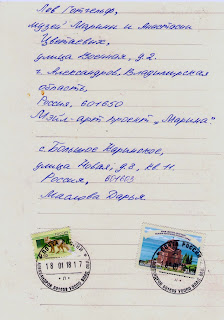 Лев Готгельф,
музей Марины и Анастасии
Цветаевых,
улица Военная, д. 2.
г. Александров, Владимирская
область,
Россия, 601650
Мэйл-арт проект „Марина"
с. Большое Каринское,
улица Новая, д. 2, кв. 11.
Россия, 601653
Маслова Дарья.
18 01 18 17